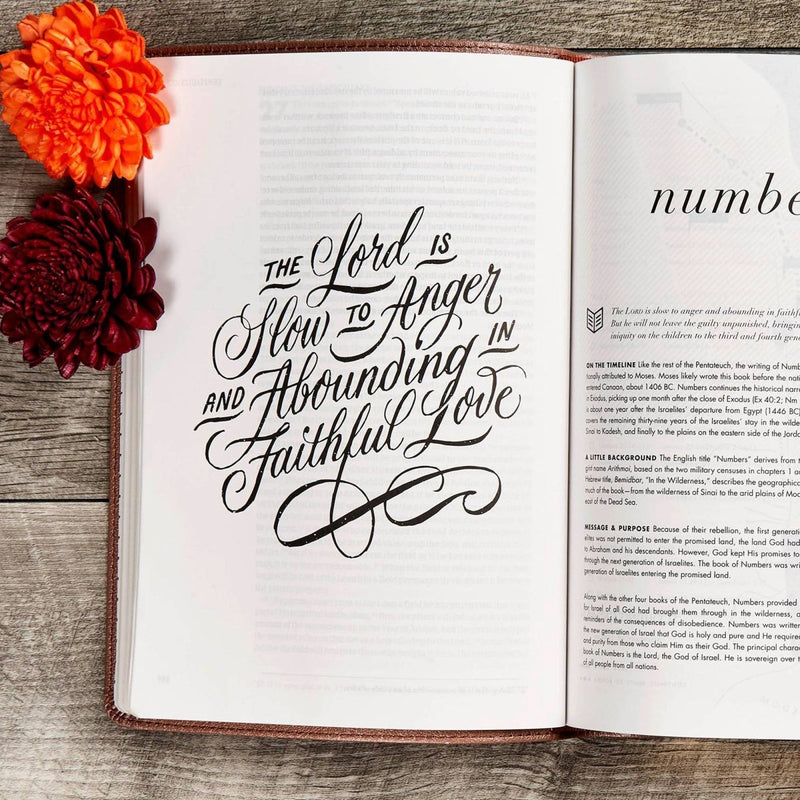 THE Lord IS
Slow TO Anger
AND Abounding IN
Faithful Love
numbe
The LORD is slow to anger and abounding in faithf
But he will not leave the guilty unpunished, bringin
iniquity on the children to the third and fourth gene
ON THE TIMELINE Like the rest of the Pentateuch, the writing of Numb
tionally attributed to Moses. Moses likely wrote this book before the nati
entered Canaan, about 1406 BC. Numbers continues the historical narra
in Exodus, picking up one month after the close of Exodus (Ex 40:2; Nm
is about one year after the Israelites' departure from Egypt (1446 BC)
covers the remaining thirty-nine years of the Israelites' stay in the wilde
Sinai to Kadesh, and finally to the plains on the eastern side of the Jorda
A LITTLE BACKGROUND The English title "Numbers" derives from t
gint name Arithmoi, based on the two military censuses in chapters 1 an
Hebrew title, Bemidbar, "In the Wilderness," describes the geographica
much of the book—from the wilderness of Sinai to the arid plains of Moa
east of the Dead Sea.
MESSAGE & PURPOSE Because of their rebellion, the first generati
elites was not permitted to enter the promised land, the land God had
to Abraham and his descendants. However, God kept His promises to
through the next generation of Israelites. The book of Numbers was writ
generation of Israelites entering the promised land.
Along with the other four books of the Pentateuch, Numbers provided
for Israel of all God had brought them through in the wilderness, a
reminders of the consequences of disobedience. Numbers was written
the new generation of Israel that God is holy and pure and He require
and purity from those who claim Him as their God. The principal charac
book of Numbers is the Lord, the God of Israel. He is sovereign over t
of all people from all nations.